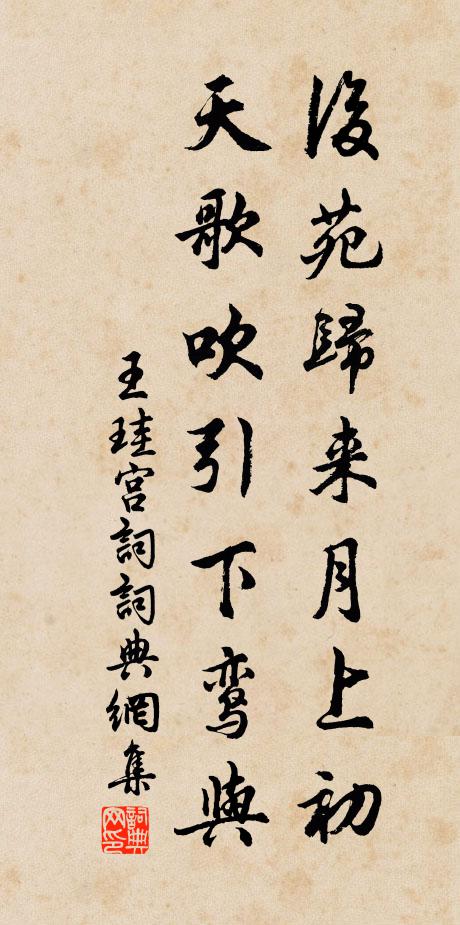 後苑歸来月上初
天歌吹引下鸾與
王珪宫詞詞典網集
詞典网印